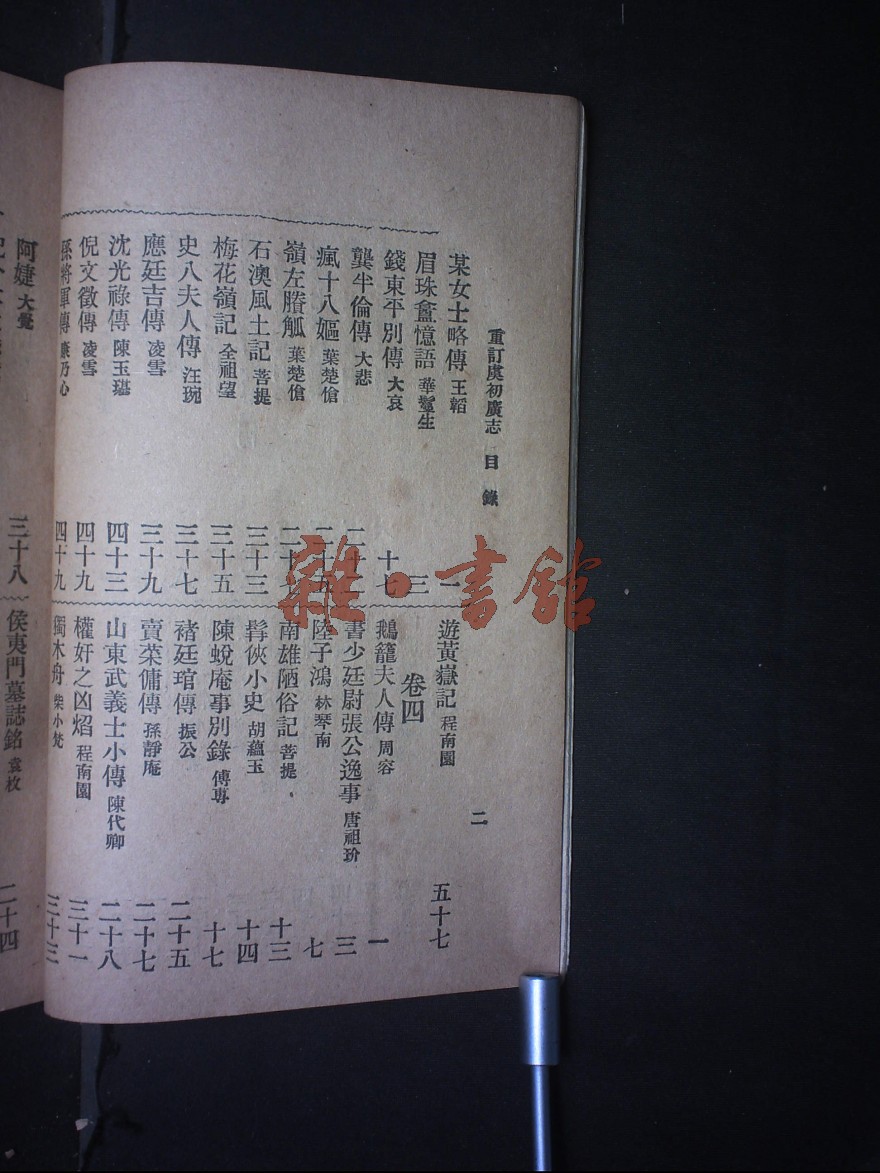 重訂虞初廣志 目錄 二
某女士略傳 王韜 一
眉珠盦憶語 華鬘生 三
錢東平別傳 大哀 十七
龔半倫傳 大悲
瘋十八嫗 葉楚傖
嶺左賸觚 葉楚傖
石澳風土記 菩提 三十三
梅花嶺記 全祖望 三十五
史八夫人傳 汪琬 三十七
應廷吉傳 凌雪 三十九
沈光祿傳 陳玉璂 四十三
倪文徵傳 凌雪 四十九
孫將軍傳 康乃心 四十九
遊黃嶽記 程南園 五十七
卷四
鵝籠夫人傳 周容 一
書少廷尉張公逸事 唐祖玠 三
陸子鴻 林琴南 七
南雄陋俗記 菩提 十三
髯俠小史 胡蘊玉 十四
陳蛻庵事別錄 傅尃 十七
褚廷琯傳 振公 二十五
賣菜傭傳 孫靜庵 二十七
山東武義士小傳 陳代卿 二十八
權奸之凶焰 程南園 三十一
獨木舟 柴小梵 三十三
阿婕 大覺 三十八
侯夷門墓誌銘 袁枚 二十四
雜·書館